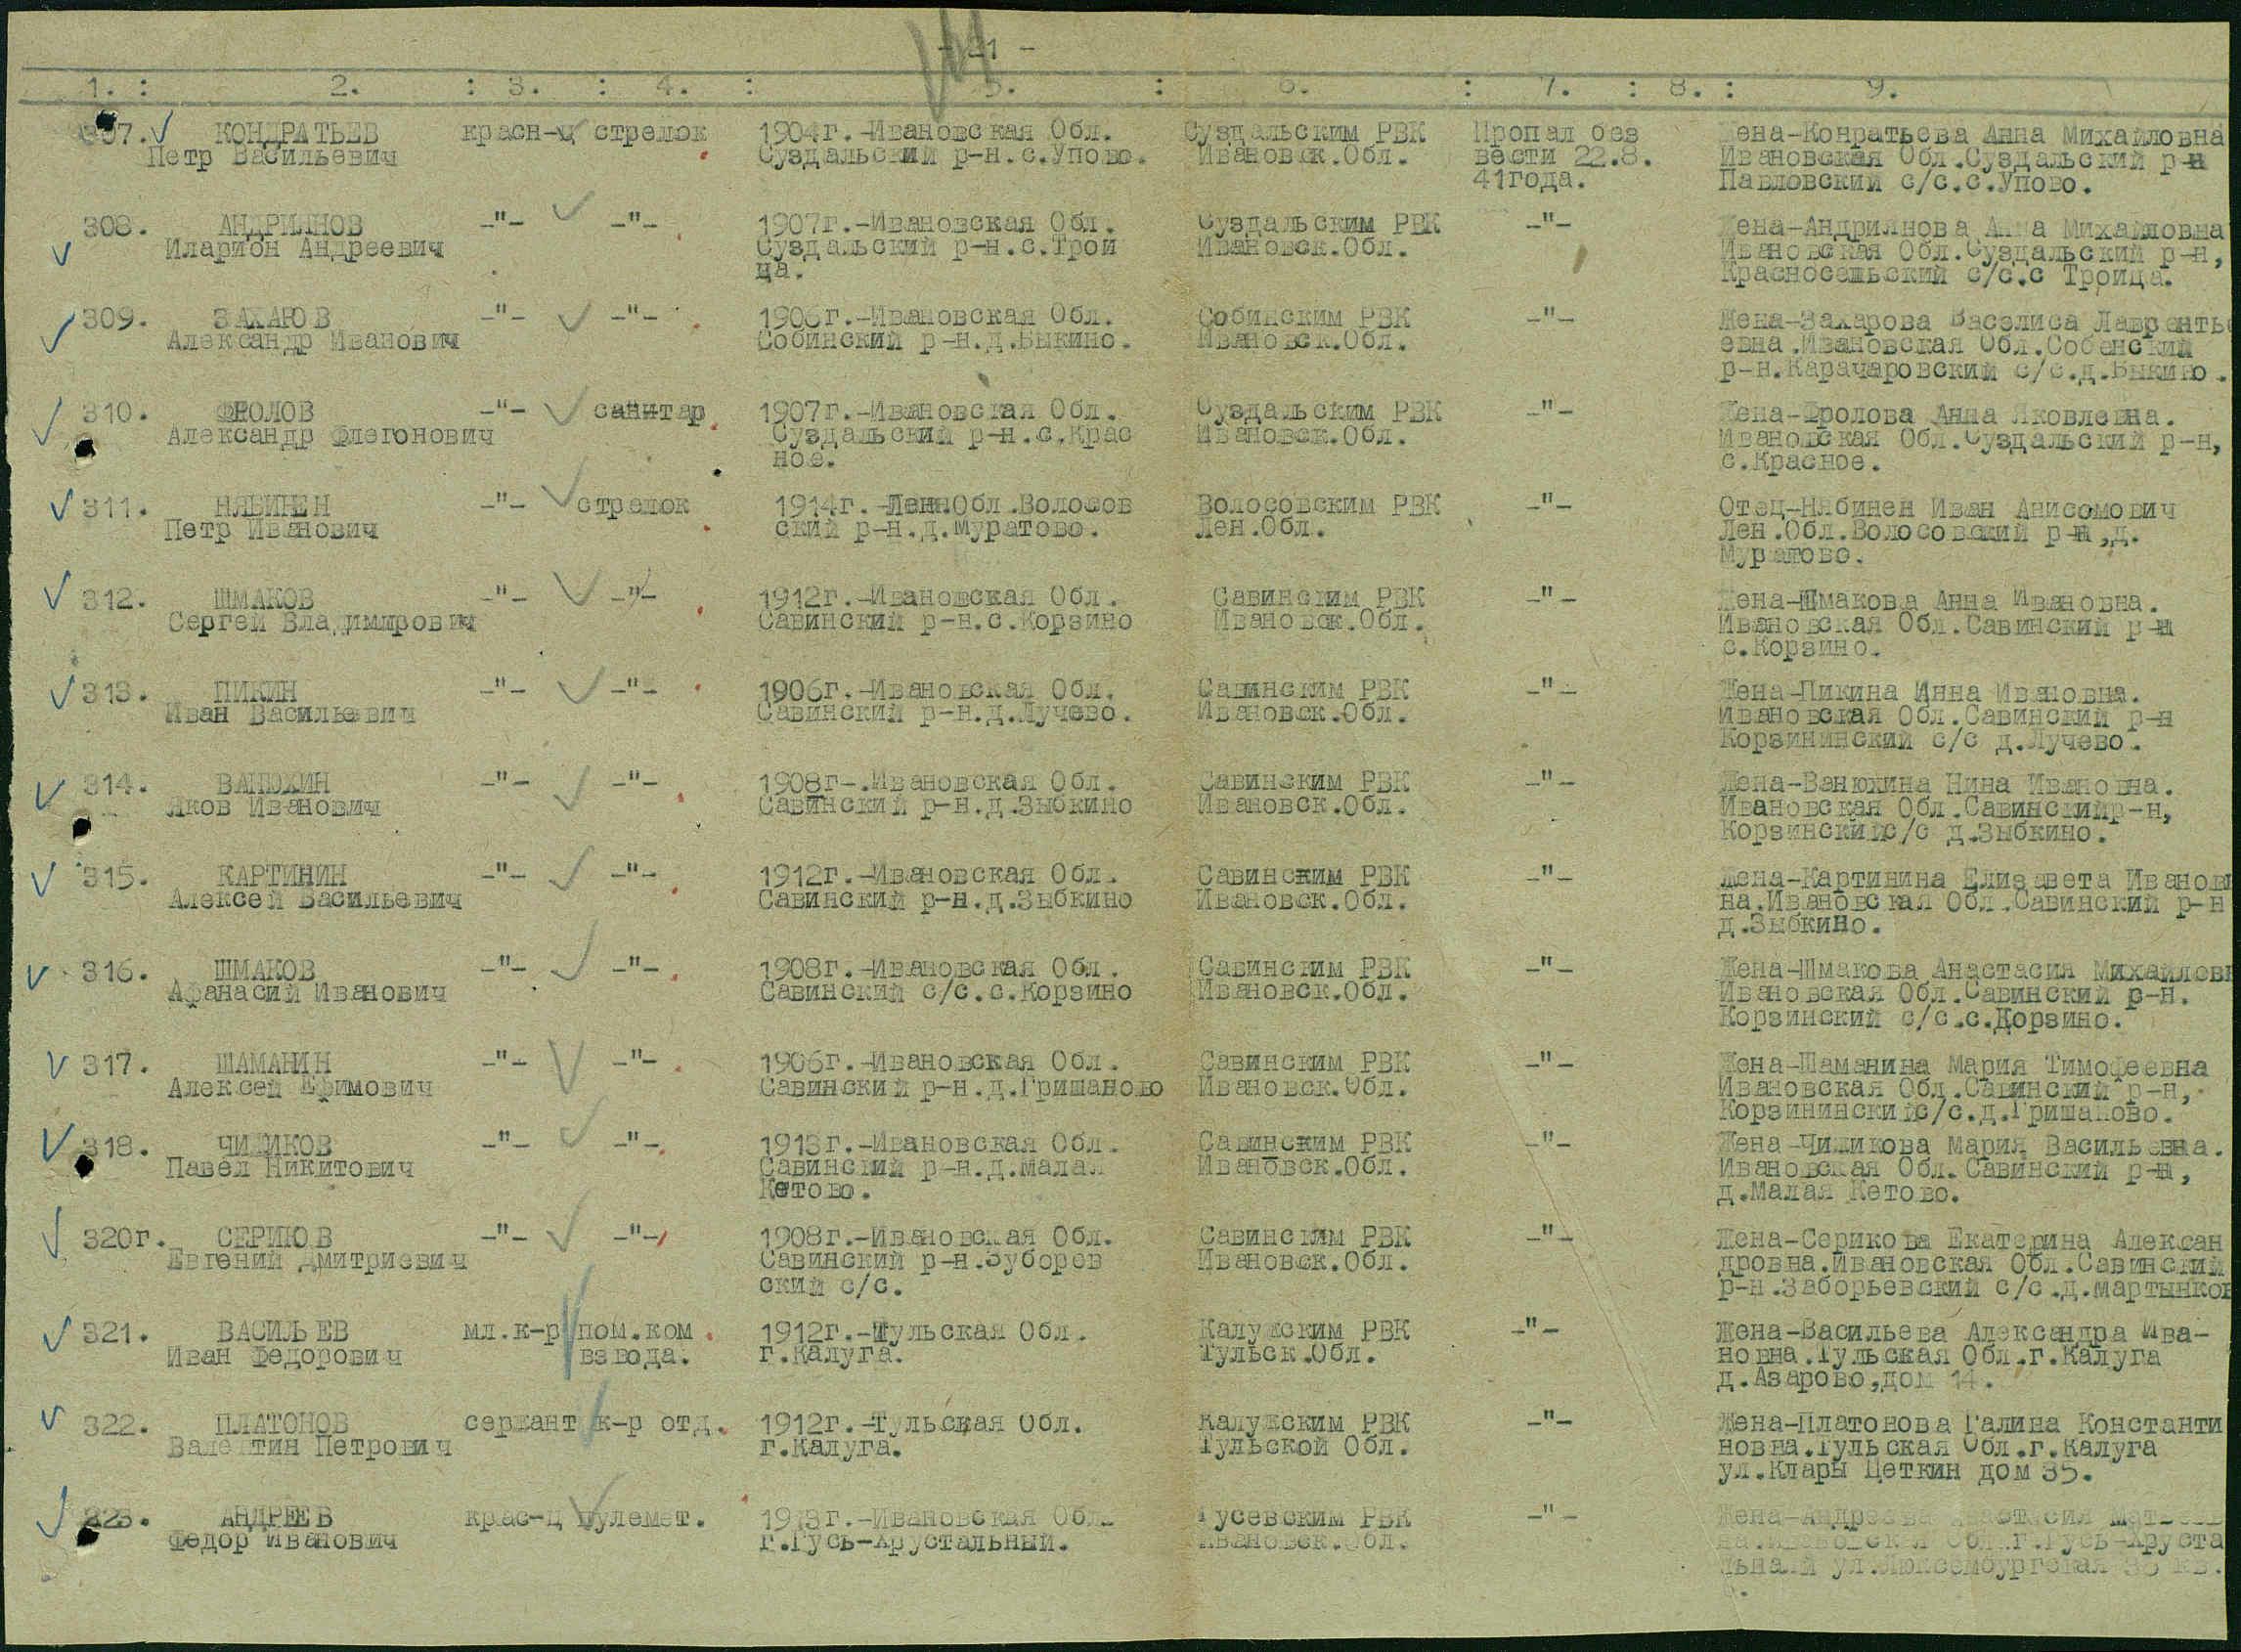 1. : 2. : 3. : 4. : 5. : 6. : 7. : 8. : 9.
307. КОНДРАТЬЕВ красн-ц стрелок 1904г.-Ивановская Обл. Суздальским РВК Пропал без Жена-Конратьева Анна Михайловна
Петр Васильевич Суздальский р-н.с.Упово. Ивановск.Обл. вести 22.8. Ивановская Обл.Суздальский р-н
41года. Павловский с/с.с.Упово.
308. АНДРИЯНОВ -"- -"- 1907г.-Ивановская Обл. Суздальским РВК -"- Жена-Андриянова Анна Михайловна
Иларион Андреевич Суздальский р-н.с.Трои Ивановск.Обл. Ивановская Обл.Суздальский р-н,
ца. Красносельский с/с.с Троица.
309. ЗАХАРОВ -"- -"- 1906г.-Ивановская Обл. Собинским РВК -"- Жена-Захарова Василиса Лавренть
Александр Иванович Собинский р-н.д.Быкино. Ивановск.Обл. евна.Ивановская Обл.Собенский
р-н.Карачаровский с/с.д.Быкино.
310. ФРОЛОВ -"- санитар 1907г.-Ивановская Обл. Суздальским РВК -"- Жена-Фролова Анна Яковлевна.
Александр Флегонович Суздальский р-н.с.Крас Ивановск.Обл. Ивановская Обл.Суздальский р-н,
ное. с.Красное.
311. НЯБИНЕН -"- стрелок 1914г.-Лен.Обл.Волосов Волосовским РВК -"- Отец-Нябинен Иван Анисомович
Петр Иванович ский р-н.д.Муратово. Лен.Обл. Лен.Обл.Волосовский р-н,д.
Муратово.
312. ШМАКОВ -"- -"- 1912г.-Ивановская Обл. Савинским РВК -"- Жена-Шмакова Анна Ивановна.
Сергей Владимирович Савинский р-н.с.Корзино Ивановск.Обл. Ивановская Обл.Савинский р-н
с.Корзино.
313. ПИКИН -"- -"- 1906г.-Ивановская Обл. Савинским РВК -"- Жена-Пикина Инна Ивановна.
Иван Васильевич Савинский р-н.д.Лучево. Ивановск.Обл. Ивановская Обл.Савинский р-н
Корзининский с/с д.Лучево.
314. ВАНЮХИН -"- -"- 1908г-.Ивановская Обл. Савинским РВК -"- Жена-Ванюхина Нина Ивановна.
Яков Иванович Савинский р-н.д.Зыбкино Ивановск.Обл. Ивановская Обл.Савинскийр-н,
Корзинскийс/с д.Зыбкино.
315. КАРТИНИН -"- -"- 1912г.-Ивановская Обл. Савинским РВК -"- Жена-Картинина Елизавета Иванов
Алексей Васильевич Савинский р-н.д.Зыбкино Ивановск.Обл. на.Ивановская Обл.Савинский р-н
д.Зыбкино.
316. ШМАКОВ -"- -"- 1908г.-Ивановская Обл. Савинским РВК -"- Жена-Шмакова Анастасия Михайлов
Афанасий Иванович Савинский с/с.с.Корзино Ивановск.Обл. Ивановская Обл.Савинский р-н.
Корзинский с/с.с.Дорзино.
317. ШАМАНИН -"- -"- 1906г.-Ивановская Обл. Савинским РВК -"- Жена-Шаманина Мария Тимофеевна
Алексей Ефимович Савинский р-н.д.Гришаново Ивановск.Обл. Ивановская Обл.Савинский р-н,
Корзининскийс/с.д.Гришаново.
318. ЧИЛИКОВ -"- -"- 1913г.-Ивановская Обл. Савинским РВК -"- Жена-Чиликова Мария Васильевна.
Павел Никитович Савинский р-н.д.Малая Ивановск.Обл. Ивановская Обл.Савинский р-н,
Кетово. д.Малая Кетово.
320г. СЕРИКОВ -"- -"- 1908г.-Ивановская Обл. Савинским РВК -"- Жена-Серикова Екатерина Алексан
Евгений Дмитриевич Савинский р-н.Зуборев Ивановск.Обл. дровна.Ивановская Обл.Савинский
ский с/с. р-н.Заборьевский с/с.д.Мартынков
321. ВАСИЛЬЕВ мл.к-р пом.ком. 1912г.-Тульская Обл. Калужским РВК -"- Жена-Васильева Александра Ива-
Иван Федорович взвода. г.Калуга. Тульск.Обл. новна.Тульская Обл.г.Калуга
д.Азарово,дом 14.
322. ПЛАТОНОВ сержант к-р отд. 1912г.-Тульская Обл. Калужским РВК -"- Жена-Платонова Галина Константи
Валентин Петрович г.Калуга. Тульской Обл. новна.Тульская Обл.г.Калуга
ул.Клары Цеткин дом 35.
323. АНДРЕЕВ крас-ц пулемет. 1913г.-Ивановская Обл. Гусевским РВК -"- Жена-Андреева Анастасия
Федор Иванович г.Гусь-Хрустальный. Ивановск.Обл. на.Ивановская Обл.г.Гусь-Хруста
льный ул.Люксембургская кв.